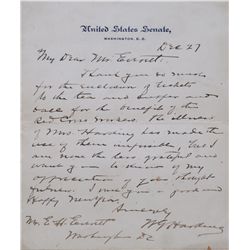 United States Senate,
WASHINGTON, D.C.
Dec 27
My Dear Mr. Everett:
Thank you so much
for the enclosure of tickets
to the tea and supper and
dance for the benefit of the
Red Cross workers. The illness
of Mrs Harding has made the
use of them impossible, but I
am none the less grateful and
want you to know of my
appreciation of your thought
fulness. I wish you a good and
Happy New Year.
Sincerely
W G Harding
Mr. E. H. Everett
Washington DC